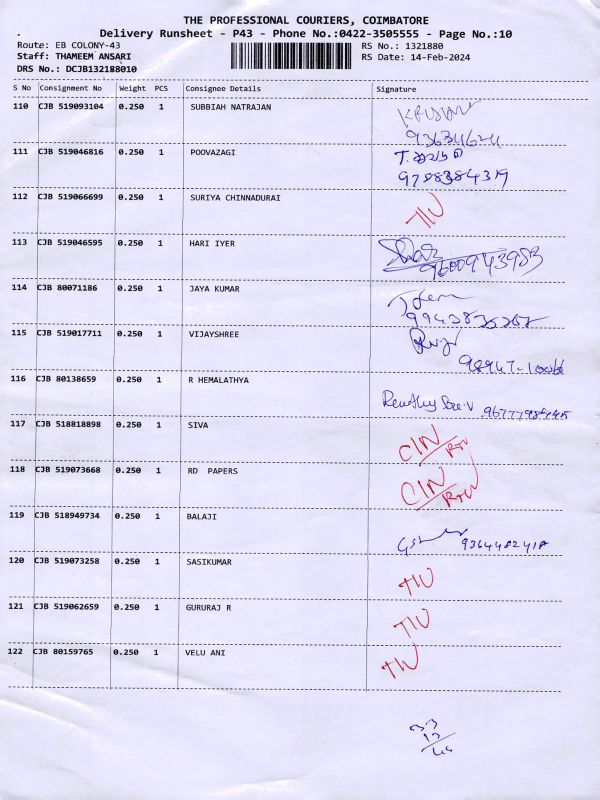 THE PROFESSIONAL COURIERS, COIMBATORE
Delivery Runsheet - P43 - Phone No.:0422-3505555 - Page No.:10
Route: EB COLONY-43 RS No.: 1321880
Staff: THAMEEM ANSARI RS Date: 14-Feb-2024
DRS No.: DCJB132188010
S No Consignment No Weight PCS Consignee Details Signature
110 CJB 519093104 0.250 1 SUBBIAH NATRAJAN
111 CJB 519046816 0.250 1 POOVAZAGI
9788384319
112 CJB 519066699 0.250 1 SURIYA CHINNADURAI
113 CJB 519046595 0.250 1 HARI IYER
9600943983
114 CJB 80071186 0.250 1 JAYA KUMAR
115 CJB 519017711 0.250 1 VIJAYSHREE
116 CJB 80138659 0.250 1 R HEMALATHYA
117 CJB 518818898 0.250 1 SIVA CIN/RTN
118 CJB 519073668 0.250 1 RD PAPERS CIN/RTN
119 CJB 518949734 0.250 1 BALAJI
120 CJB 519073258 0.250 1 SASIKUMAR
121 CJB 519062659 0.250 1 GURURAJ R
122 CJB 80159765 0.250 1 VELU ANI
33
13